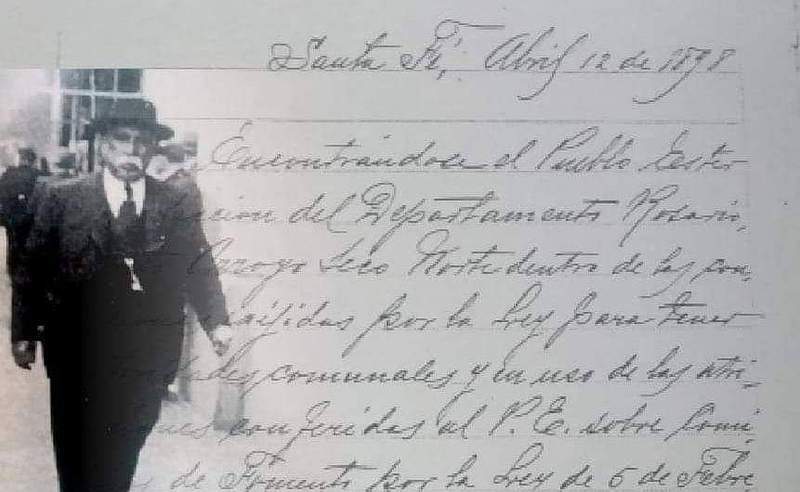 Santa Fé, Abril 12 de 1898
Encontrándose el Pueblo Ester
del Departamento Rosario,
Arroyo Seco Norte dentro de las con,
exijidas por la Ley para tener
comunales y en uso de las atri,
conferidas al P. E. sobre Comi
de Fomento por la Ley de 5 de Febre